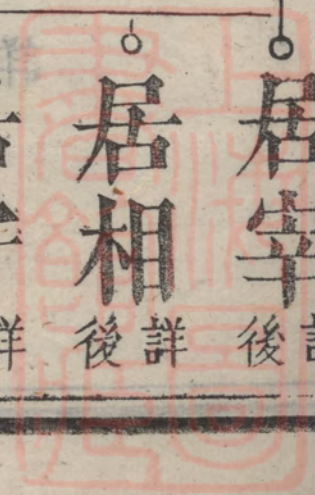 居宰 詳後
居相 詳後
詳